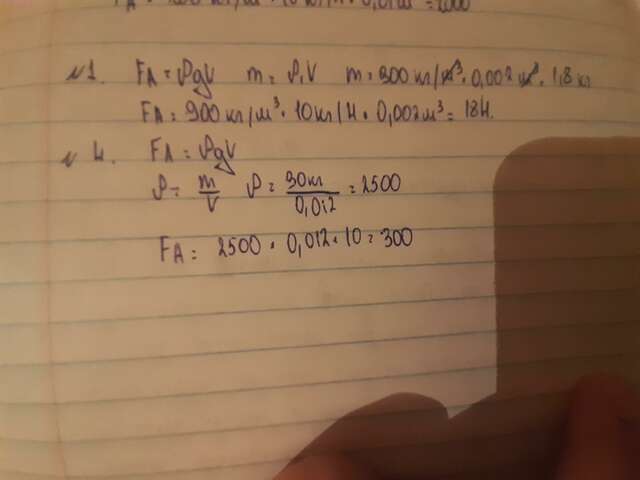 №1. FA = ρgV m = ρ.V m = 900 кг/м³ · 0,002 м³ · 1,8 кг
FA = 900 кг/м³ · 10 кг/Н · 0,002 м³ = 18Н.
№ 4. FA = ρgV
ρ = m/V ρ = 30кг/0,012 = 2500
FA = 2500 · 0,012 · 10 = 300